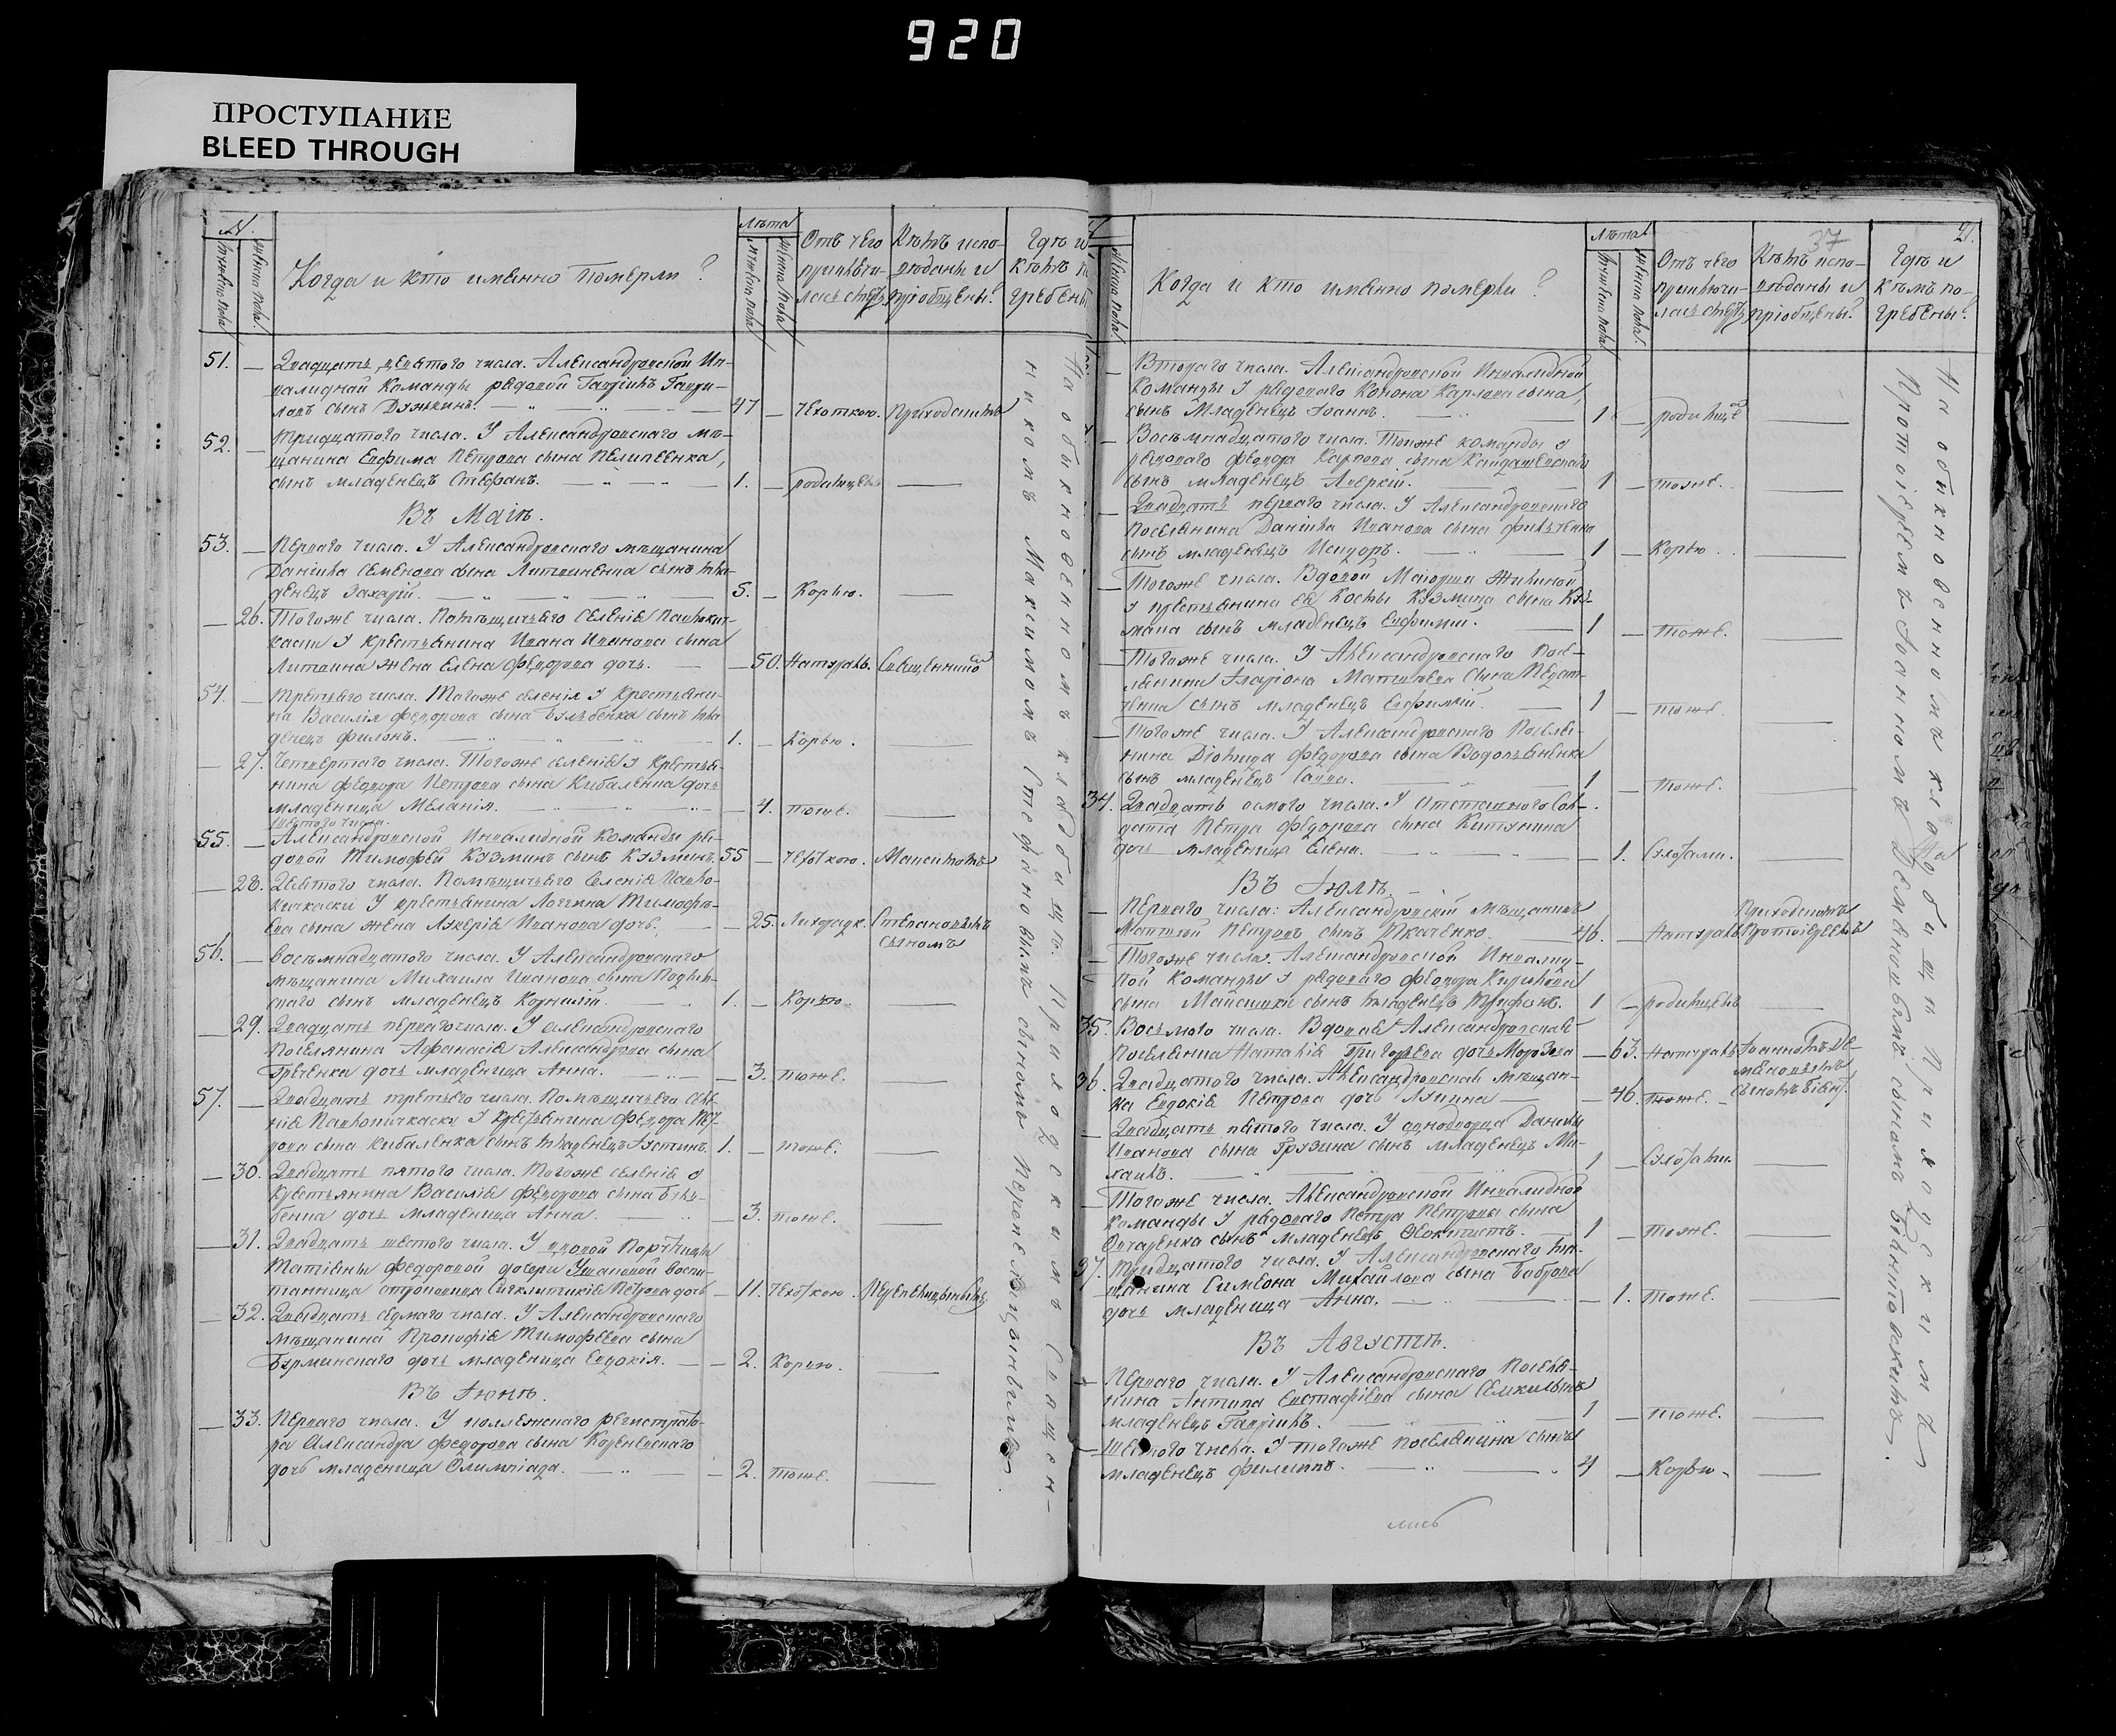 920
ПРОСТУПАНИЕ
BLEED THROUGH
№.
Лѣта
Когда и кто именно померли?
Отъ чего приключилась смерть
Кѣмъ исповѣданы и пріобщены?
Гдѣ и кѣмъ погребены
51. Двадцать девятого числа. Александровской Ин-
валидной Команды рядовой Гаврiилъ Гаври-
ловъ сынъ 47 Чехоткою. Приходскимъ
52. Тридцатого числа. У Александровскаго мѣ-
щанина Евфима Петрова сына Пелипенка,
сынъ младенецъ Стефанъ. 1. родимцемъ
Въ Маіѣ.
53. Перваго числа. У Александровскаго мѣщанина
Даніила Семенова сына Литвиненка сынъ мла-
денецъ Захарій. 5. Корью.
26. Тогоже числа. Помѣщичьяго Селенія
У Крестьянина Ивана Иванова сына
Литвина жена Елена Федорова дочь. 50. Натурал. Священнико
54. Третьяго числа. Тогоже селенія У Крестьяни-
на Василія Федорова сына сынъ мла
денецъ Филонъ. 1. Корью.
27. Четвертаго числа. Тогоже селенія У Крестья-
нина Федора Петрова сына Кибаленка дочь
младеница Меланія. 4. тоже.
шестого числа.
55. Александровской Инвалидной Команды ря-
довой Тимофей Кузминъ сынъ Кузминъ. 55 чехоткою. Максимомъ
28. Девятого числа. Помѣщичьяго Селенія
У крестьянина Логина Тимофѣ-
ева сына жена Лукерія Иванова дочь. 25. Лихорадк. Стефановымъ
сыномъ
56. Восьмнадцатого числа. У Александровскаго
мѣщанина Михаила Иванова сына
сынъ младенецъ Корнилій. 1. Корью.
29. Двадцать перваго числа. У Александровскаго
Поселянина Афанасія Александрова сына
Гречанка дочь младеница Анна. 3. тоже.
57. Двадцать третьяго числа. Помѣщичьяго Селе-
нія У Крестьянина Федора Пет-
рова сына Кибаленка сынъ младенецъ Іустинъ. 1. тоже.
30. Двадцать пятого числа. Тогоже селенія у
Крестьянина Василія Федорова сына
дочь младеница Анна. 3. тоже.
31. Двадцать шестого числа. У вдовой Порутчицы
Татіяны Федоровой дочери Ушаковой воспи-
танница Петрова дочь 11. Чехоткою.
32. Двадцать седмаго числа. У Александровскаго
мѣщанина Прокофія Тимофѣева сына
Бурминскаго дочь младеница Евдокія. 2. Корью.
Въ Іюнѣ.
33. Перваго числа. У коллежскаго регистрато-
ра Александра Федорова сына Корневскаго
дочь младеница Олимпіада. 2. тоже.
На обыкновенномъ кладбищѣ. Приходскимъ Священ-
никомъ Максимомъ Стефановымъ сыномъ
№
37
21.
Лѣта
Когда и кто именно померли?
Отъ чего приключилась смерть
Кѣмъ исповѣданы и пріобщены?
Гдѣ и кѣмъ погребены?
Втораго числа. Александровской Инвалидной
Команды У рядового Конона Карпова сына,
сынъ Младенецъ Іоаннъ. 1 родимце
Восьмнадцатого числа. Тояже команды у
рядового Федора Карпова сына
сынъ младенецъ Аверкій. 1 тоже.
Двадцать перваго числа. У Александровскаго
Поселянина Даніила Иванова сына
сынъ младенецъ Исидоръ. 1 Корью
Тогоже числа. Вдовой Маіорши
У крестьянина ея Косты Кузмина сына Куз-
мана сынъ младенецъ Евфимій. 1 тоже.
Тогоже числа. У Александровскаго Посе-
лянина Иларіона Матвѣева сына
сынъ младенецъ Евфимій. 1 тоже.
Тогоже числа. У Александровскаго Поселя-
нина Діомида Федорова сына Водопьяненка
сынъ младенецъ Савва. 1 тоже.
34. Двадцать осмого числа. У Отставного Сол-
дата Петра Федорова сына Китунина
дочь младеница Елена. 1. Сухотами.
Въ Іюлѣ.
Перваго числа: Александровскій Мѣщанинъ
Матвѣй Петровъ сынъ Ткаченко. 46. Натурал. Приходскимъ Протоіереемъ
Тогоже числа. Александровской Инвалид-
ной Команды у рядового Федора Кирилова
сына сынъ младенецъ Трифонъ. 1 родимцемъ
35. Восьмого числа. Вдова Александровская
Поселянка Наталія Григорьева дочь Морозова 63. Натурал. Іоанномъ Де-
меновымъ
36. Двадцатого числа. Александровская мѣщан-
ка Евдокія Петрова дочь 46. тоже. сыномъ
Двадцать пятого числа. У однодворца Данилы
Иванова сына Грузина сынъ младенецъ Ми-
хаилъ. 1 Сухотами.
Тогоже числа. Александровской Инвалидной
Команды У рядоваго Петра Петрова сына
Овчаренка сынъ младенецъ Ѳеоктистъ. 1 тоже.
37. Тридцатого числа. У Александровскаго мѣ-
щанина Симеона Михайлова сына Баброва
дочь младеница Анна. 1. тоже.
Въ Августѣ.
Перваго числа. У Александровскаго Поселя-
нина Антипа Евстафіева сына сынъ
младенецъ Гавріилъ. 1 тоже.
Шестого числа. У тогоже поселянина сынъ
младенецъ Филиппъ. 4 Корью.
На обыкновенномъ кладбищѣ Приходскимъ
Протоіереемъ Іоанномъ Деменовымъ сыномъ